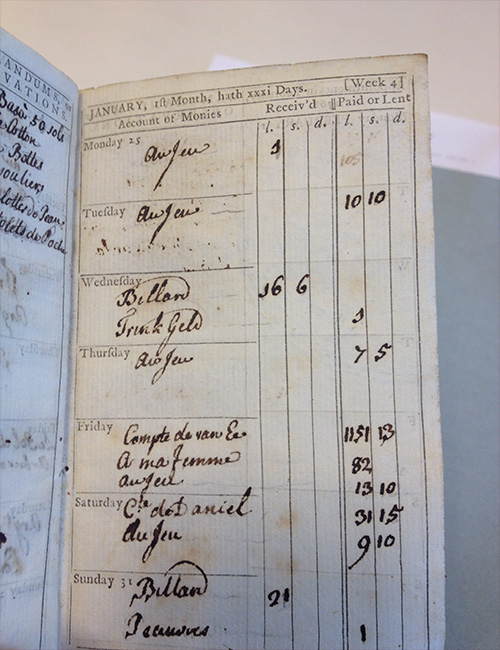 ANDUMS, or
VATIONS.
Bas de 50 sols
Cotton
Bottes
souliers
JANUARY, 1st Month, hath xxxi Days. [Week 4]
Account of Monies Receiv'd Paid or Lent
l. s. d. l. s. d.
Monday 25
au Jeu 1 105
Tuesday au Jeu 10 10
Wednesday
Billard 16 6
Trink Geld 1
Thursday au Jeu 7 5
Friday Compte de van Ee 1151 13
A ma femme 82
au Jeu 13 10
Saturday Cte de Daniel 31 15
au Jeu 9 10
Sunday 31 Billard 21
1